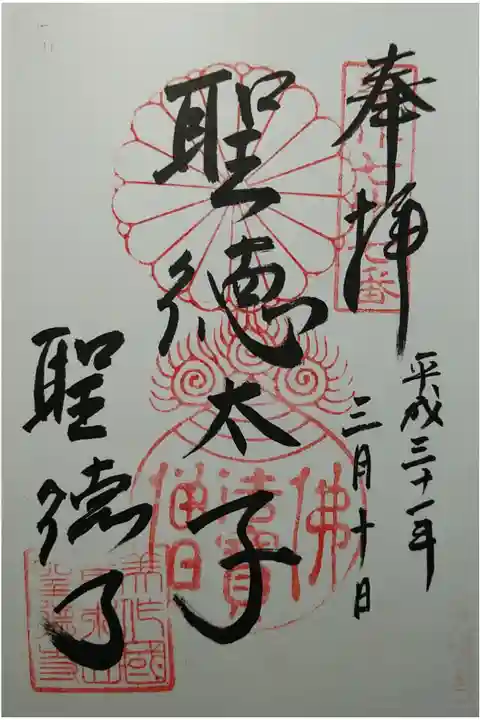 奉拝
平成三十一年
三月十日
聖徳太子
聖徳寺
佛法僧寶
美作國